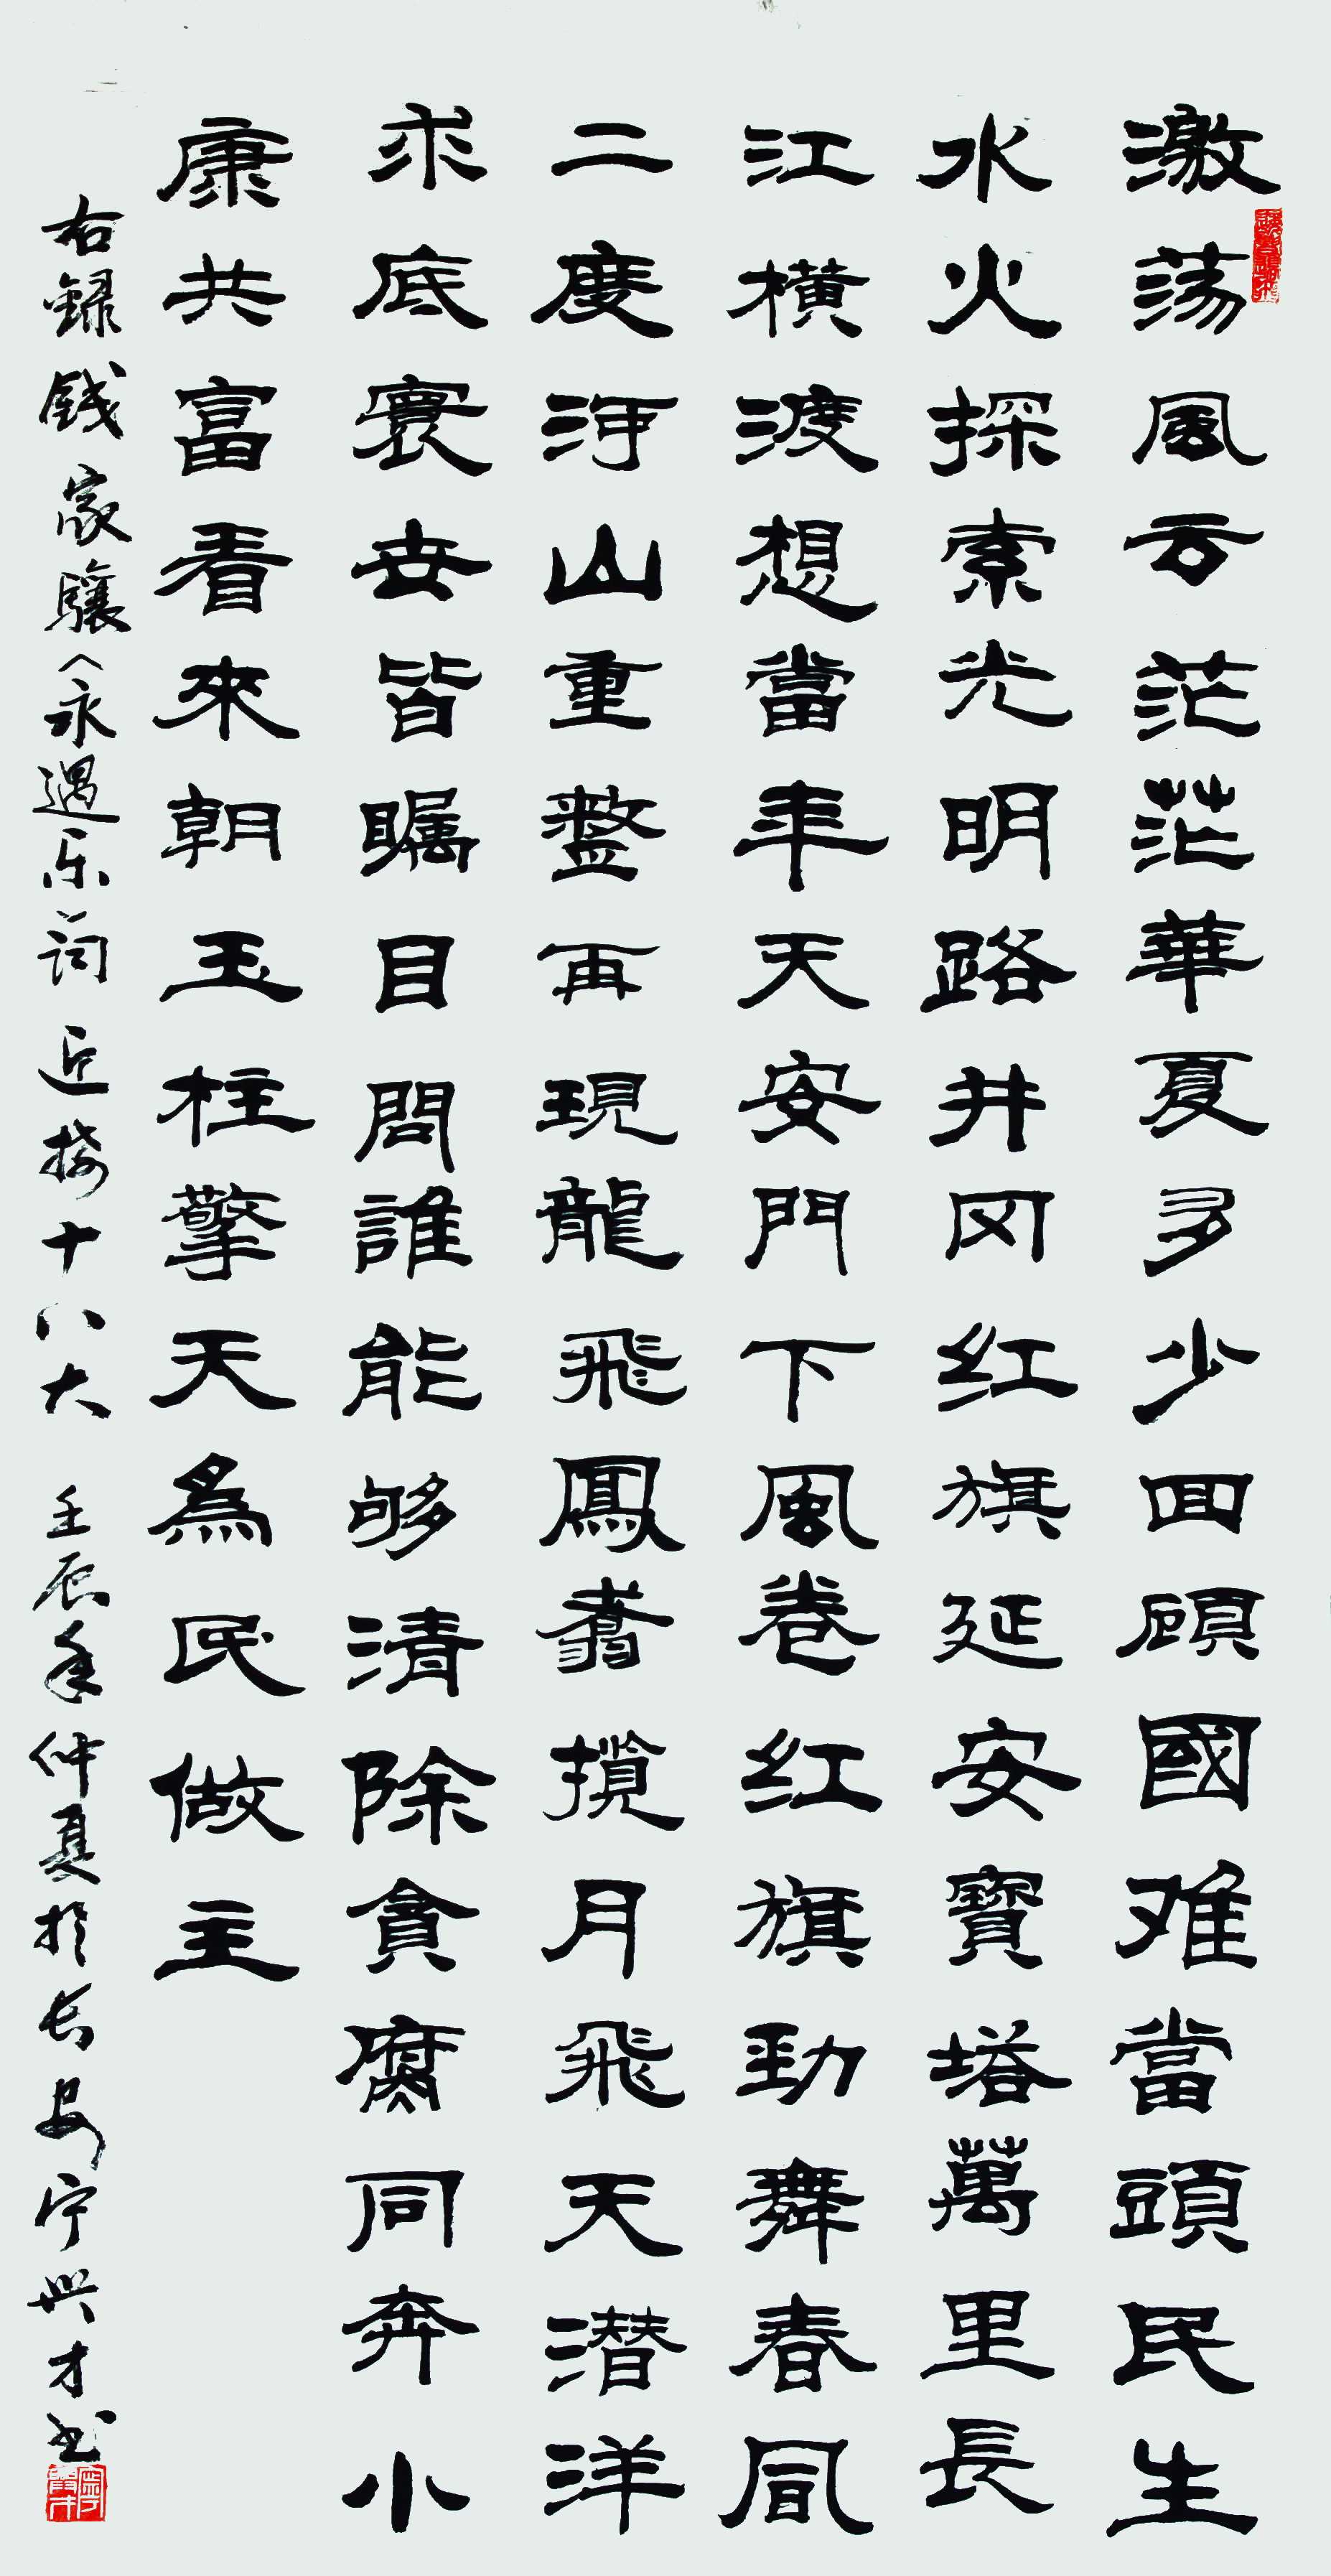 激荡風云茫茫華夏多少回顧國难當頭民生
水火探索光明路井冈红旗延安寶塔萬里長
江横渡想當年天安門下風卷红旗劲舞春風
二度河山重整再現龍飛鳳翥揽月飛天潜洋
求底寰世皆瞩目問誰能够清除貪腐同奔小
康共富看來朝玉柱擎天為民做主
右録钱家驤〈永遇乐词 迎接十八大 壬辰年仲夏於长安宁兴才书